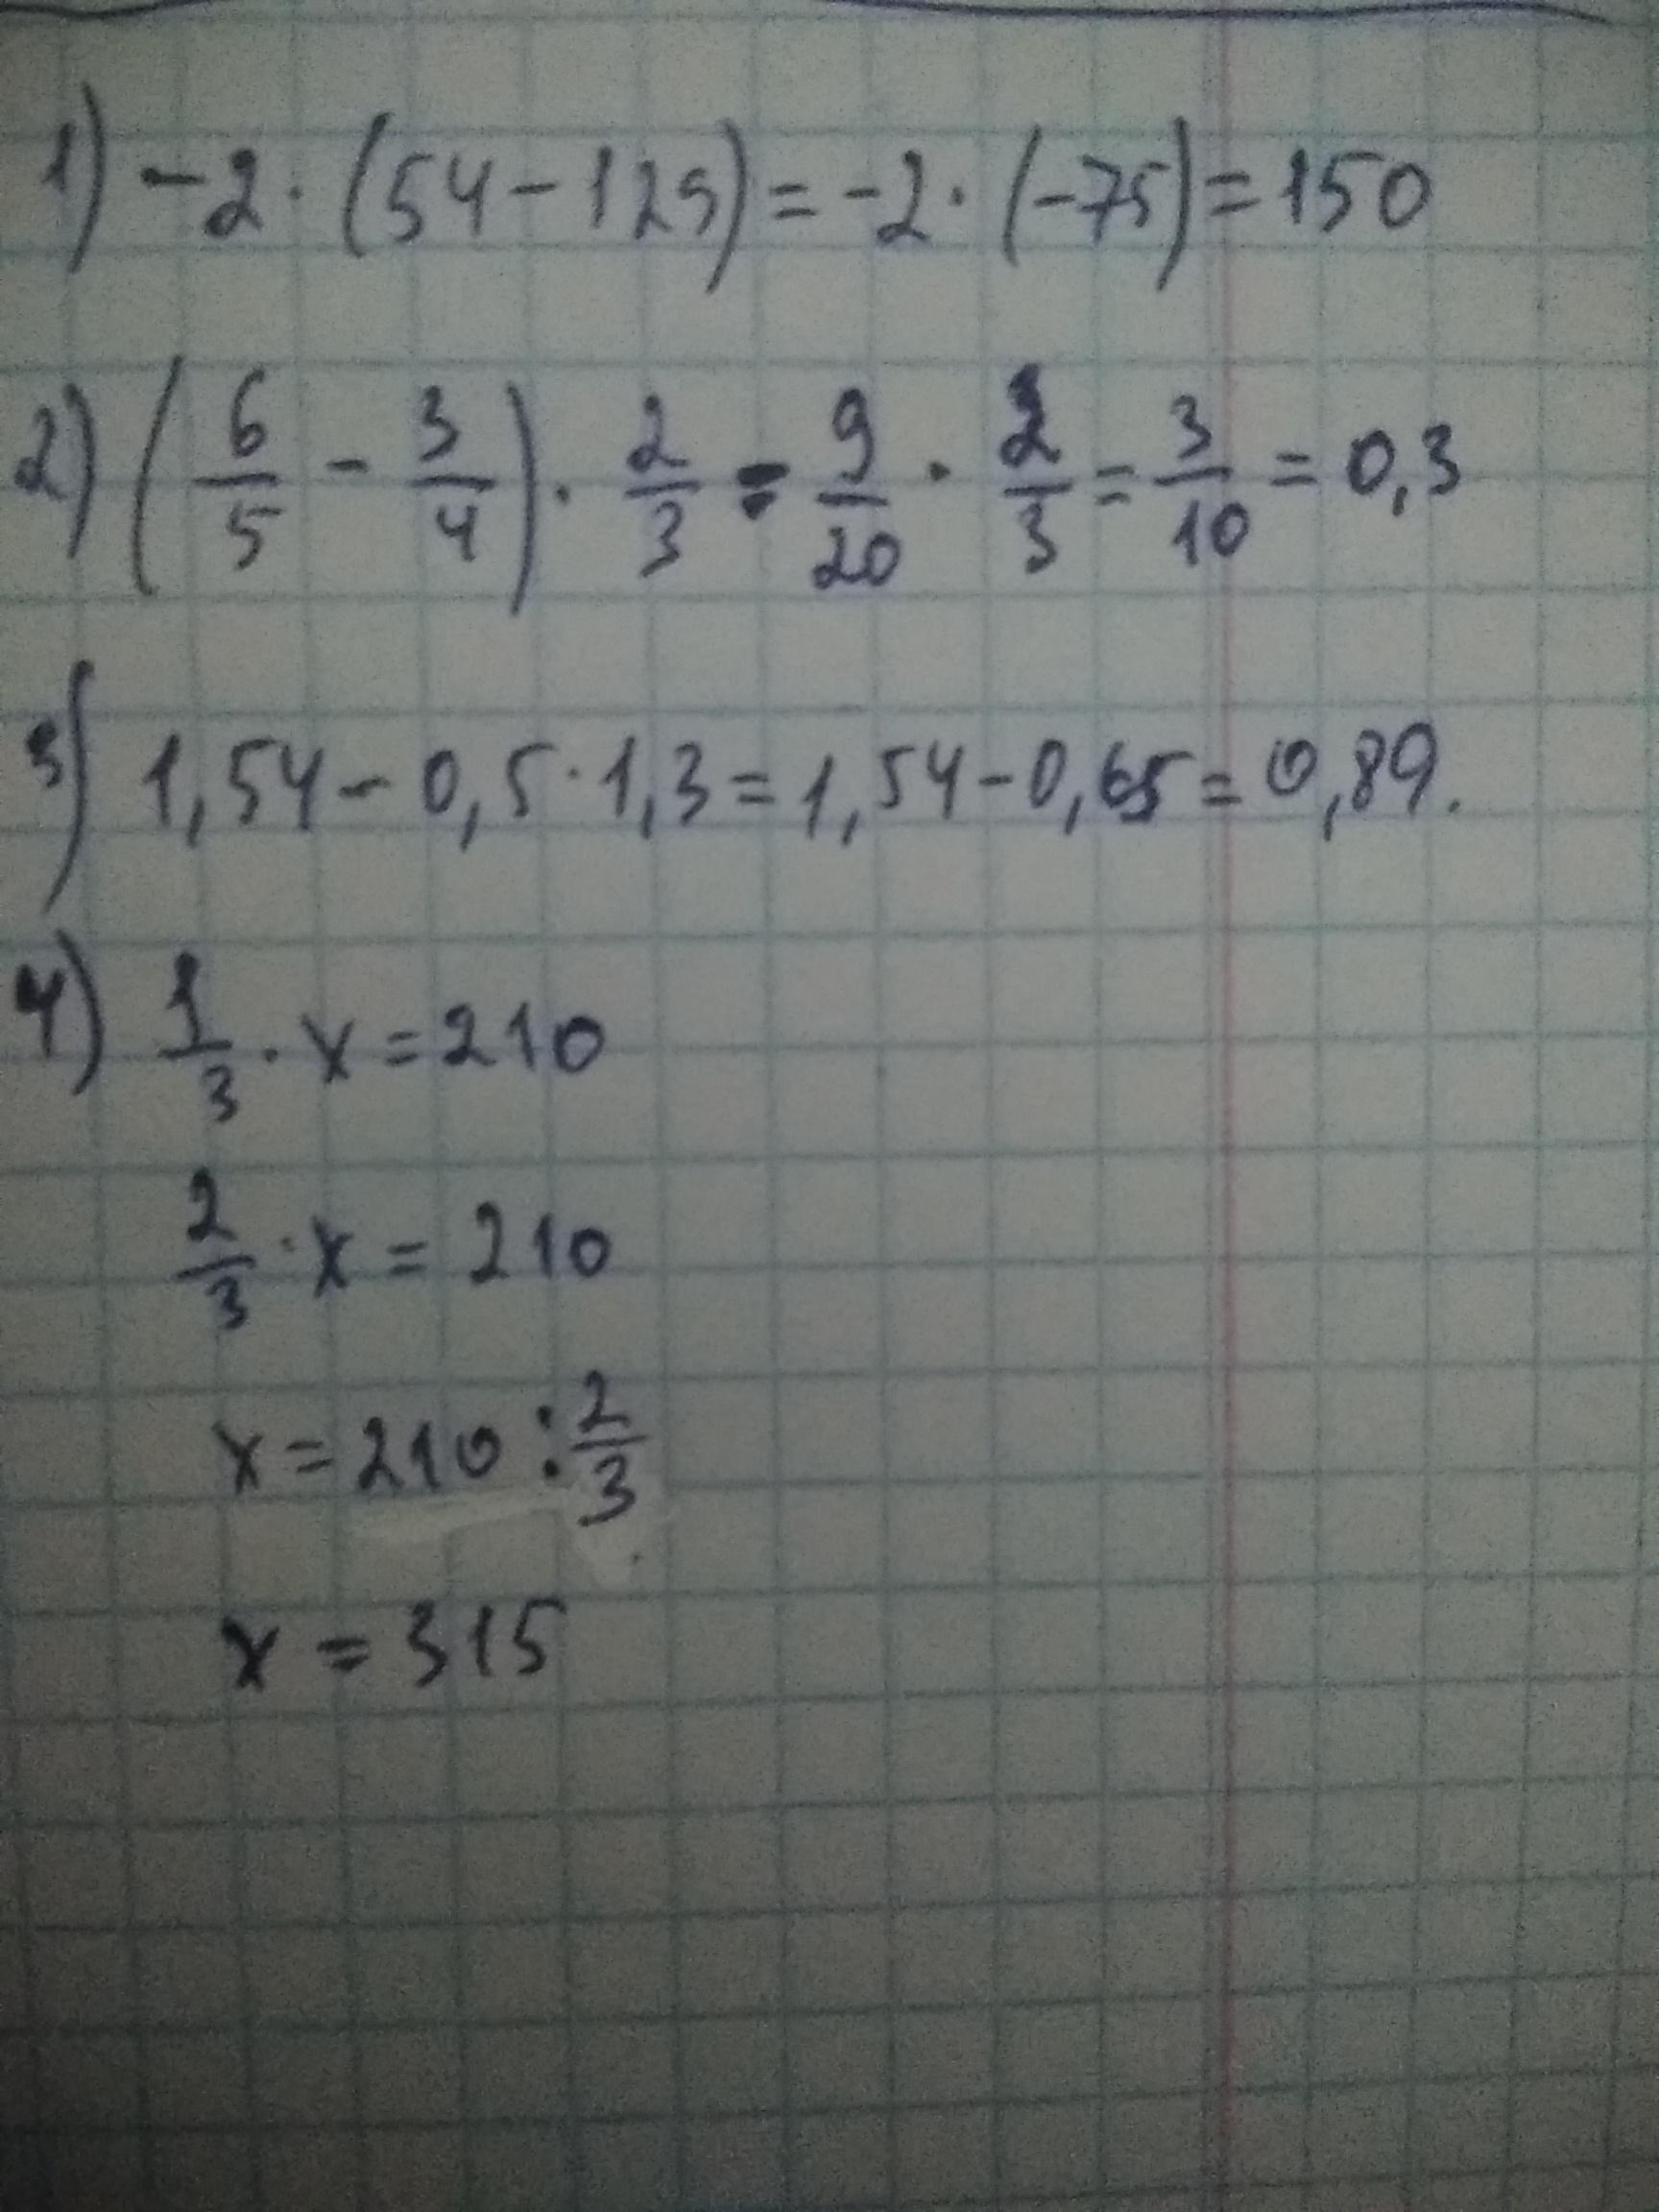 1) -2 · (54 - 129) = -2 · (-75) = 150
2) (6/5 - 3/4) · 2/3 = 9/20 · 2/3 = 3/10 = 0,3
3) 1,54 - 0,5 · 1,3 = 1,54 - 0,65 = 0,89.
4) 1/3 · x = 210
2/3 · x = 210
x = 210 : 2/3
x = 315